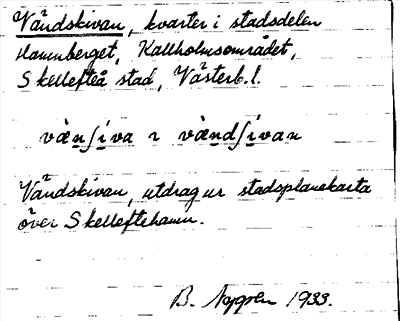 Vändskivan, kvarter i stadsdelen
Hamnberget, Kallholmsområdet,
Skellefteå stad, Västerb. l.
vä̀nʃiva ɿ vä̀ndʃivan
Vändskivan, utdrag ur stadsplanekarta
över Skelleftehamn.
B. Nygren 1933.